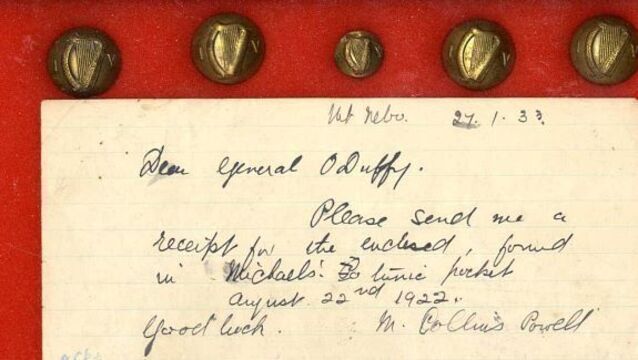 Mt Nebo. 27. 1. 33.
Dear General O Duffy.
Please send me a
receipt for the enclosed, found
in Michaels' tunic pocket
august 22nd 1922.
Good luck. M. Collins Powell
I V
I V
I V
I V
I V